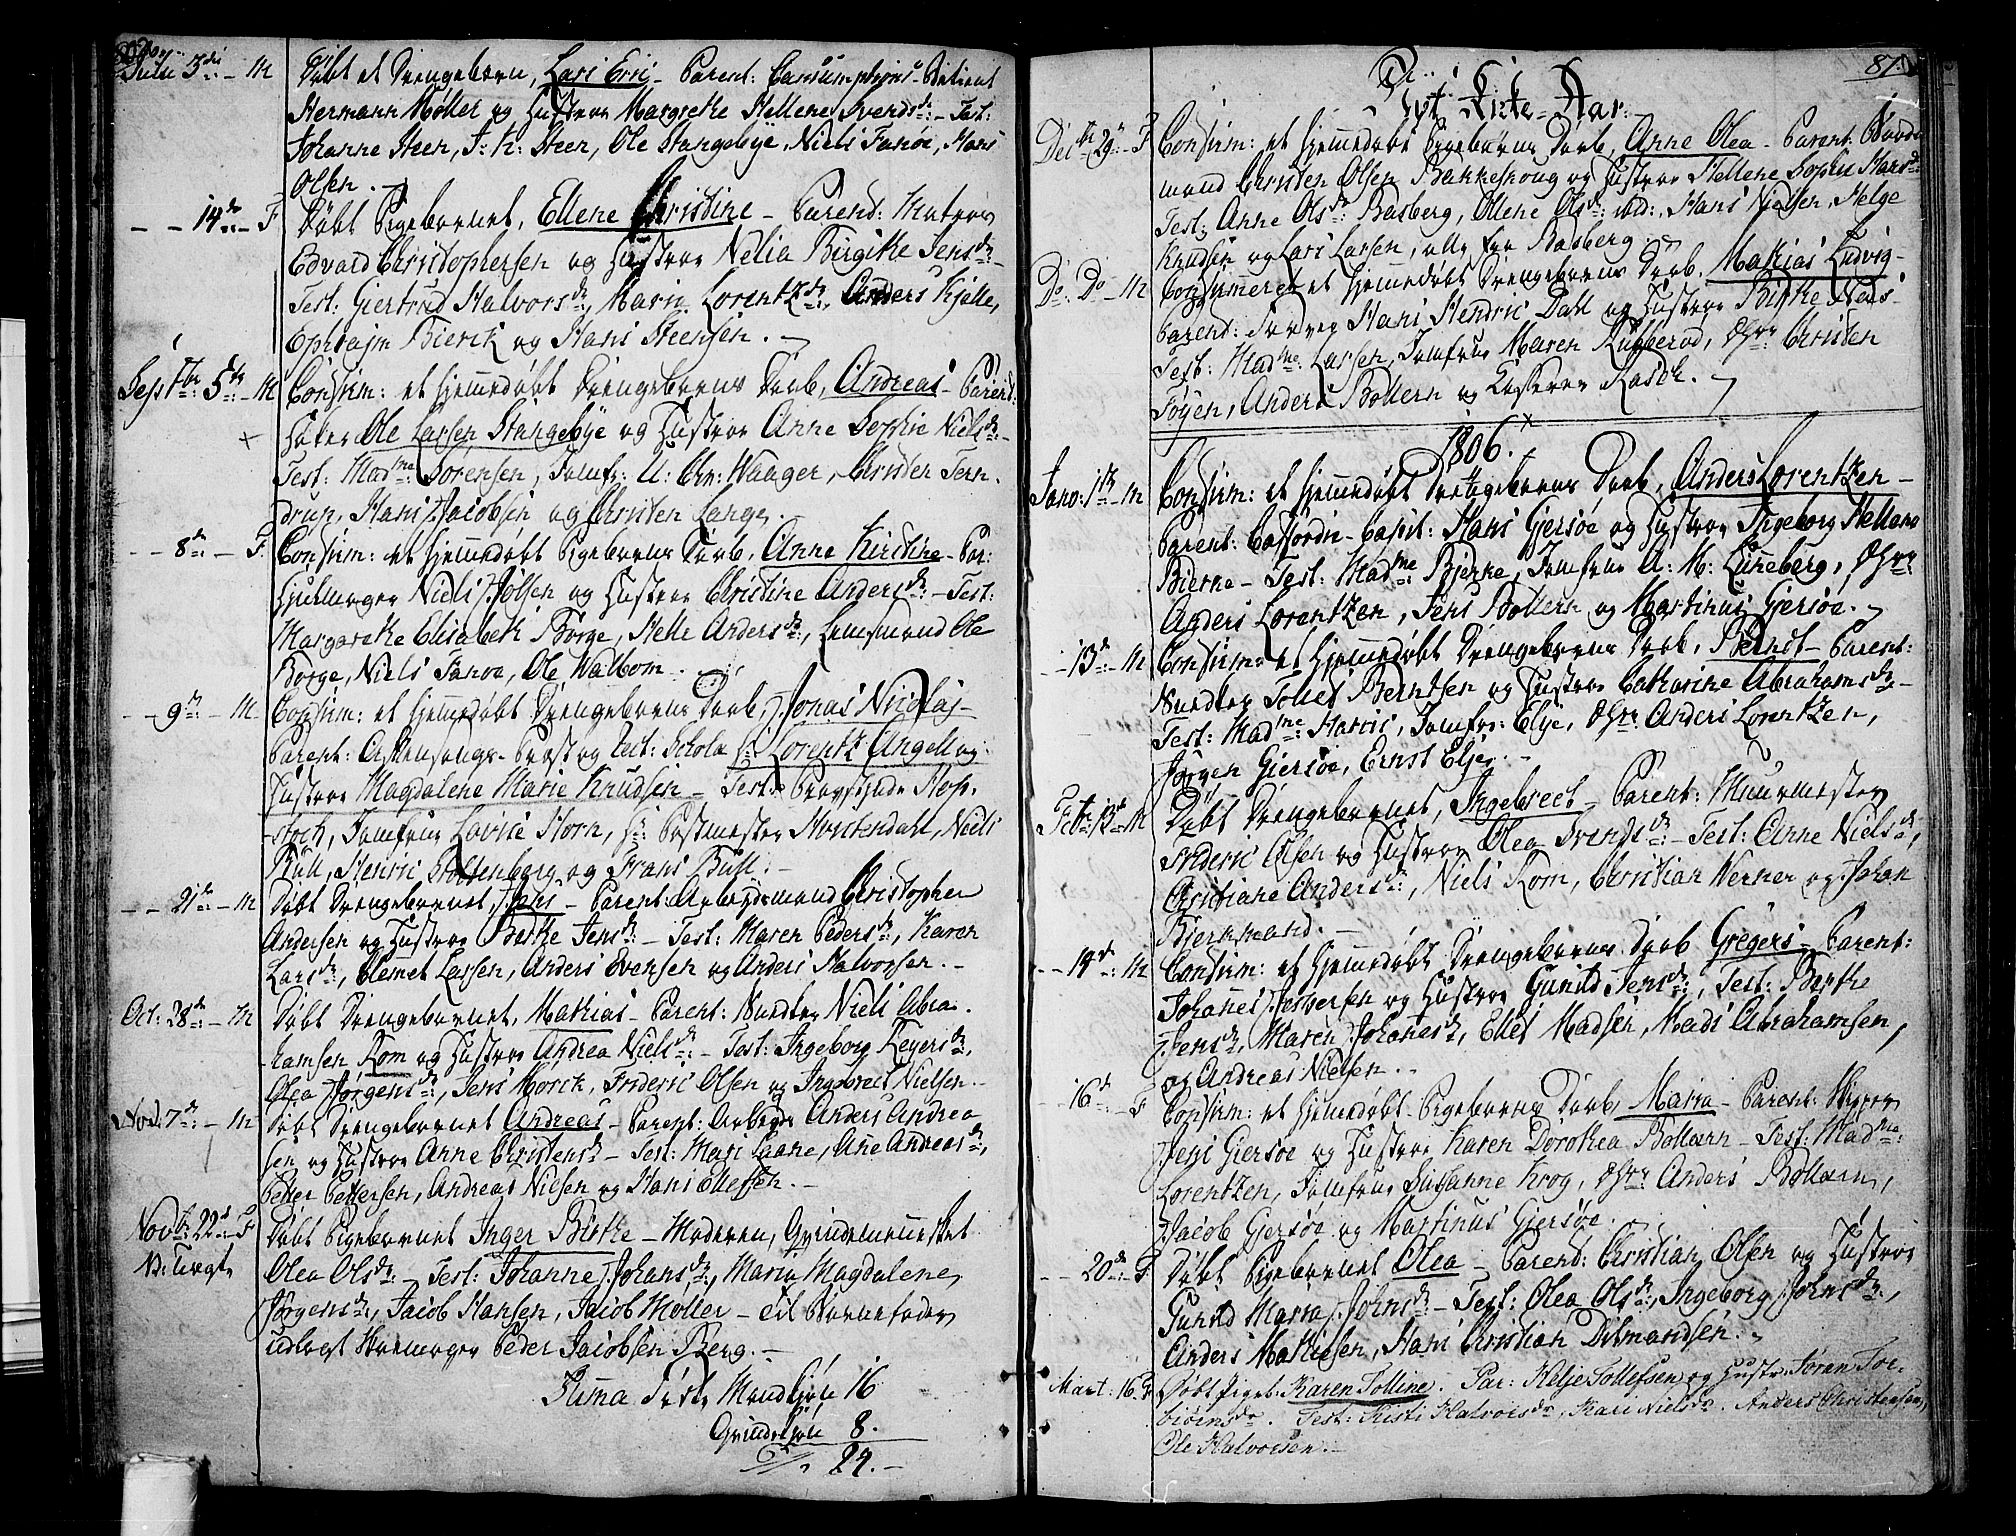 Julii 5te – M Døbt et Drengebarn, Lars Eric – Parent: Consumptions-Betient
Hermann Møller og Hustroe Margrethe Hellene Svendsdr: – Test:
Johanne Steen, J: H: Steen, Ole Stangebye, Niels Fanøe, Hans
Olsen.
14de – F Døbt Pigebarnet, Ellene Christine – Parend: Matros
Edvard Christophersen og Hustroe Nelia Birgithe Jensdr: –
Test: Giertrud Halvorsdr:, Maria Lorentzdr:, Anders Kjelle,
Ephraim Bierck og Hans Steensen.
Septbr: 5te – M Confirm: et hjemmedøbt Drengebarns Daab, Andreas – Parend:
Høker Ole Larsen Stangebye og Hustroe Anne Sophie Nielsdr: –
Test: Madme: Sørensen, Jomfr: A: Chr: Waager, Christen Tern-
drup, Hans Jacobsen og Christen Lange.
8de – F Confirm: et hjemmedøbt Pigebarns Daab, Anne Kirstine – Par:
Hjulmager Niels Olsen og Hustroe Christine Andersdr: – Test:
Margarethe Elisabeth Borge, Helle Andersdr:, Lensmand Ole
Borge, Niels Fanøe, Ole Walbom.
9de – M Confirm: et hjemmedøbt Drengebarns Daab, Jonas Nicolaj –
Parent: Aftensangs-Præst og Rect: Schola Hr: Lorentz Angell og
Hustroe Magdalene Marie Knudsen – Test: Provstinde Hop-
stock, Jomfrue Lovise Horn, Hr: Postmester Hvistendahl, Niels
Bull, Henric Stoltenberg og Frans Bull.
21de – M Døbt Drengebarnet, Hans – Parent: Arbeydsmand Christopher
Andersen og Hustroe Berthe Jensdr: – Test: Maren Pedersdr:, Karen
Larsdr:, Clemet Larsen, Anders Evensen og Anders Halvorsen.
Oct: 28de – M Døbt Drengebarnet, Mathias – Parent: Niels Abra-
hamsen Rom og Hustroe Andrea Nielsdr: – Test: Ingeborg Reyersdr:,
Olea Jørgensdr:, Jens Morck, Frideric Olsen og Ingebrect Nielsen.
Nov: 7de – M Døbt Drengebarnet Andreas – Parent: Arbeyds: Anders Andrea-
sen og Hustroe Anne Christensdr: – Test: Mari Laane, Ane Andreasdr:,
Petter Pettersen, Andreas Nielsen og Hans Ellefsen.
Novbr: 22de – F Døbt Pigebarnet Inger Birthe – Moderen, Qvindemennesket
N: Uægte Olea Olsdr: – Test: Johanne Johansdr:, Maria Magdalene
Jørgensdr:, Jacob Hansen, Jacob Møller – til Barnefader
udlagt Skomager Peder Jacobsen Berg.
Suma Føde Mandkjøn 16
Qvindekjøn 8.
24.
87.
Nyt Kirke-Aar.
Decbr: 29de – F Confirm: et hjemmedøbt Pigebarns Daab, Anne Olea – Parent: Gaard-
mand Christen Olsen Bakkeskoug og Hustroe Hellene Sophie Hansdr:
Test: Anne Olsdr: Basberg, Ellene Olsdr: ibid:, Hans Nielsen, Helge
Knudsen og Lars Larsen, alle fra Basberg.
Do: Do – M Confirmeret et hjemmedøbt Drengebarns Daab, Mathias Ludvig –
Parend: Farver Hans Hendric Dahl og Hustroe Birthe Næss –
Test: Madme: Larsen, Jomfrue Maren Rubberød, Dhrr: Christen
Føyen, Anders Bollern og Casserer Rasch.
1806.
Janv: 1te – M Confirm: et hjemmedøbt Drengebarns Daab, Anders Lorentzen –
Parent: Cofferdie-Capit: Hans Gjersøe og Hustroe Ingeborg Hellene
Bierne – Test: Madme: Bjerke, Jomfrue A: M: Lüneberg, Dhrr:
Anders Lorentzen, Jens Bollern og Martinus Gjersøe.
13de – M Confirm: et hjemmedøbt Drengebarns Daab, Berndt – Parent:
Tollef Berntsen og Hustroe Catharine Abrahamsdr: –
Test: Madme: Harris, Jomfru: Elje, Dhrr: Anders Lorentzen,
Jørgen Giersøe, Ernst Eljer.
Febr: 13de – M Døbt Drengebarnet, Ingebrect – Parent: Muurmester
Frideric Olsen og Hustroe Olea Svendsdr: – Test: Anne Nielsdr:,
Christiane Andersdr:, Niels Rom, Christian Werner og Johan
Bjerkmand.
14de – M Confirm: et hjemmedøbt Drengebarns Daab Gregers – Parent:
Johanes Jespersen og Hustroe Gunild Jensdr:, Test: Berthe
Jensdr:, Maren Johanesdr:, Ellef Madsen, Mads Abrahamsen,
og Andreas Nielsen.
16de – F Confirm: et hjemmedøbt Pigebarns Daab, Maria – Parent: Skipper
Jens Giersøe og Hustroe Karen Dorothea Bollærn – Test: Madme:
Lorentzen, Jomfrue Susanne Krog, Dhrr: Anders Bollærn,
Jacob Gjersøe og Martinus Gjersøe.
20de – F Døbt Pigebarnet Olea – Parend: Christian Olsen og Hustroe
Gunild Maria Johnsdr: – Test: Olea Olsdr:, Ingeborg Johnsdr:,
Anders Mathisen, Hans Christian Ditmandsen.
Mart: 16 F Døbt Piget: Karen Tolline. Par: Helje Tollefsen og Hustr: Søren Tor-
biørnsdr. Test: Kisti Halvorsdr, Kari Nielsdr. Anders Christensen,
Ole Halvorsen.